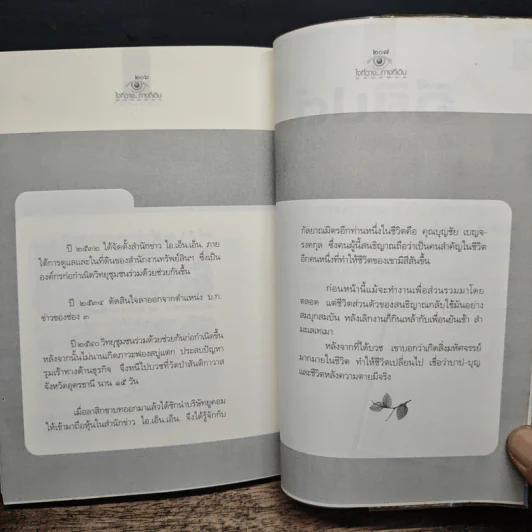 ๒๐๖
ใจที่วาง...กายที่เดิน
ปี ๒๕๓๒ ได้จัดตั้งสำนักข่าว ไอ.เอ็น.เอ็น. ภาย
ใต้การดูแลและในที่ดินของสำนักงานทรัพย์สินฯ ซึ่งเป็น
องค์กรก่อกำเนิดวิทยุชุมชนร่วมด้วยช่วยกันขึ้น
ปี ๒๕๓๔ ตัดสินใจลาออกจากตำแหน่ง บ.ก.
ข่าวของช่อง ๓
ปี ๒๕๔๐ วิทยุชุมชนร่วมด้วยช่วยกันก่อกำเนิดขึ้น
หลังจากนั้นไม่นานเกิดภาวะฟองสบู่แตก ประสบปัญหา
รุมเร้าทางด้านธุรกิจ จึงหนีไปบวชที่วัดป่าสันติกาวาส
จังหวัดอุดรธานี นาน ๑๕ วัน
เมื่อลาสิกขาบทออกมาแล้วได้ชักนำบริษัทยูคอม
ให้เข้ามาถือหุ้นในสำนักข่าว ไอ.เอ็น.เอ็น. จึงได้รู้จักกับ
๒๐๗
ใจที่วาง...กายที่เดิน
กัลยาณมิตรอีกท่านหนึ่งในชีวิตคือ คุณบุญชัย เบญจ-
รงคกุล ซึ่งคนผู้นี้สนธิญาณถือว่าเป็นคนสำคัญในชีวิต
อีกคนหนึ่งที่ทำให้ชีวิตของเขามีสีสันขึ้น
ก่อนหน้านี้แม้จะทำงานเพื่อส่วนรวมมาโดย
ตลอด แต่ชีวิตส่วนตัวของสนธิญาณกลับใช้มันอย่าง
สมบุกสมบัน หลังเลิกงานก็กินเหล้ากับเพื่อนยันเช้า สำ
มะเลเทเมา
หลังจากที่ได้บวช เขาบอกว่าเกิดสิ่งมหัศจรรย์
มากมายในชีวิต ทำให้ชีวิตเปลี่ยนไป เชื่อว่าบาป-บุญ
และชีวิตหลังความตายมีจริง